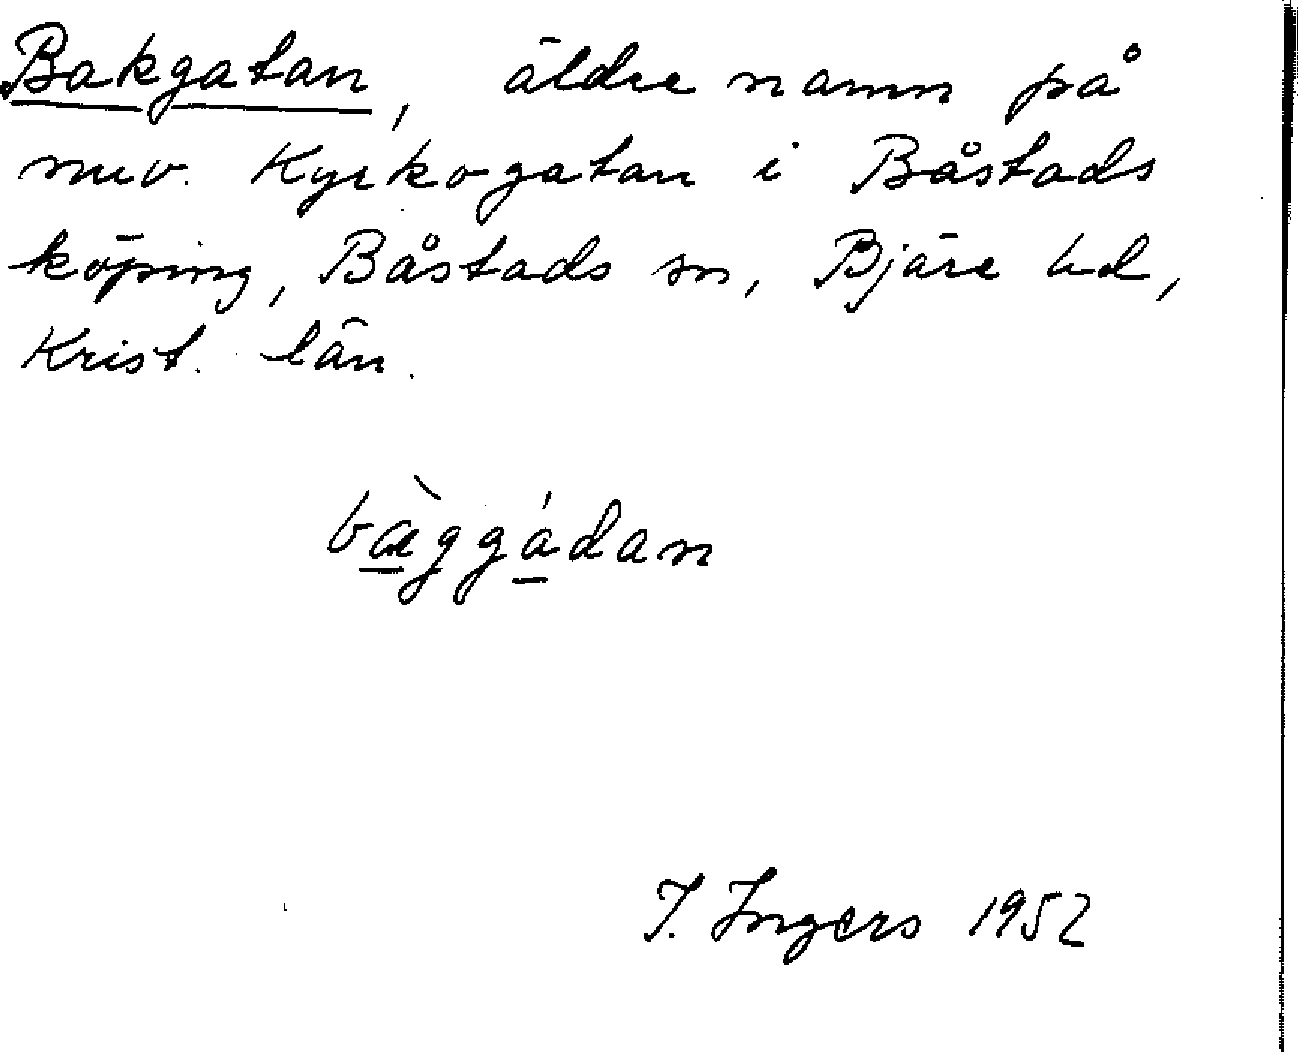 Bakgatan, äldre namn på
nuv. Kyrkogatan i Båstads
köping, Båstads sn, Bjäre hd,
Krist. län.
bæ̀ggádan
I. Ingers 1952